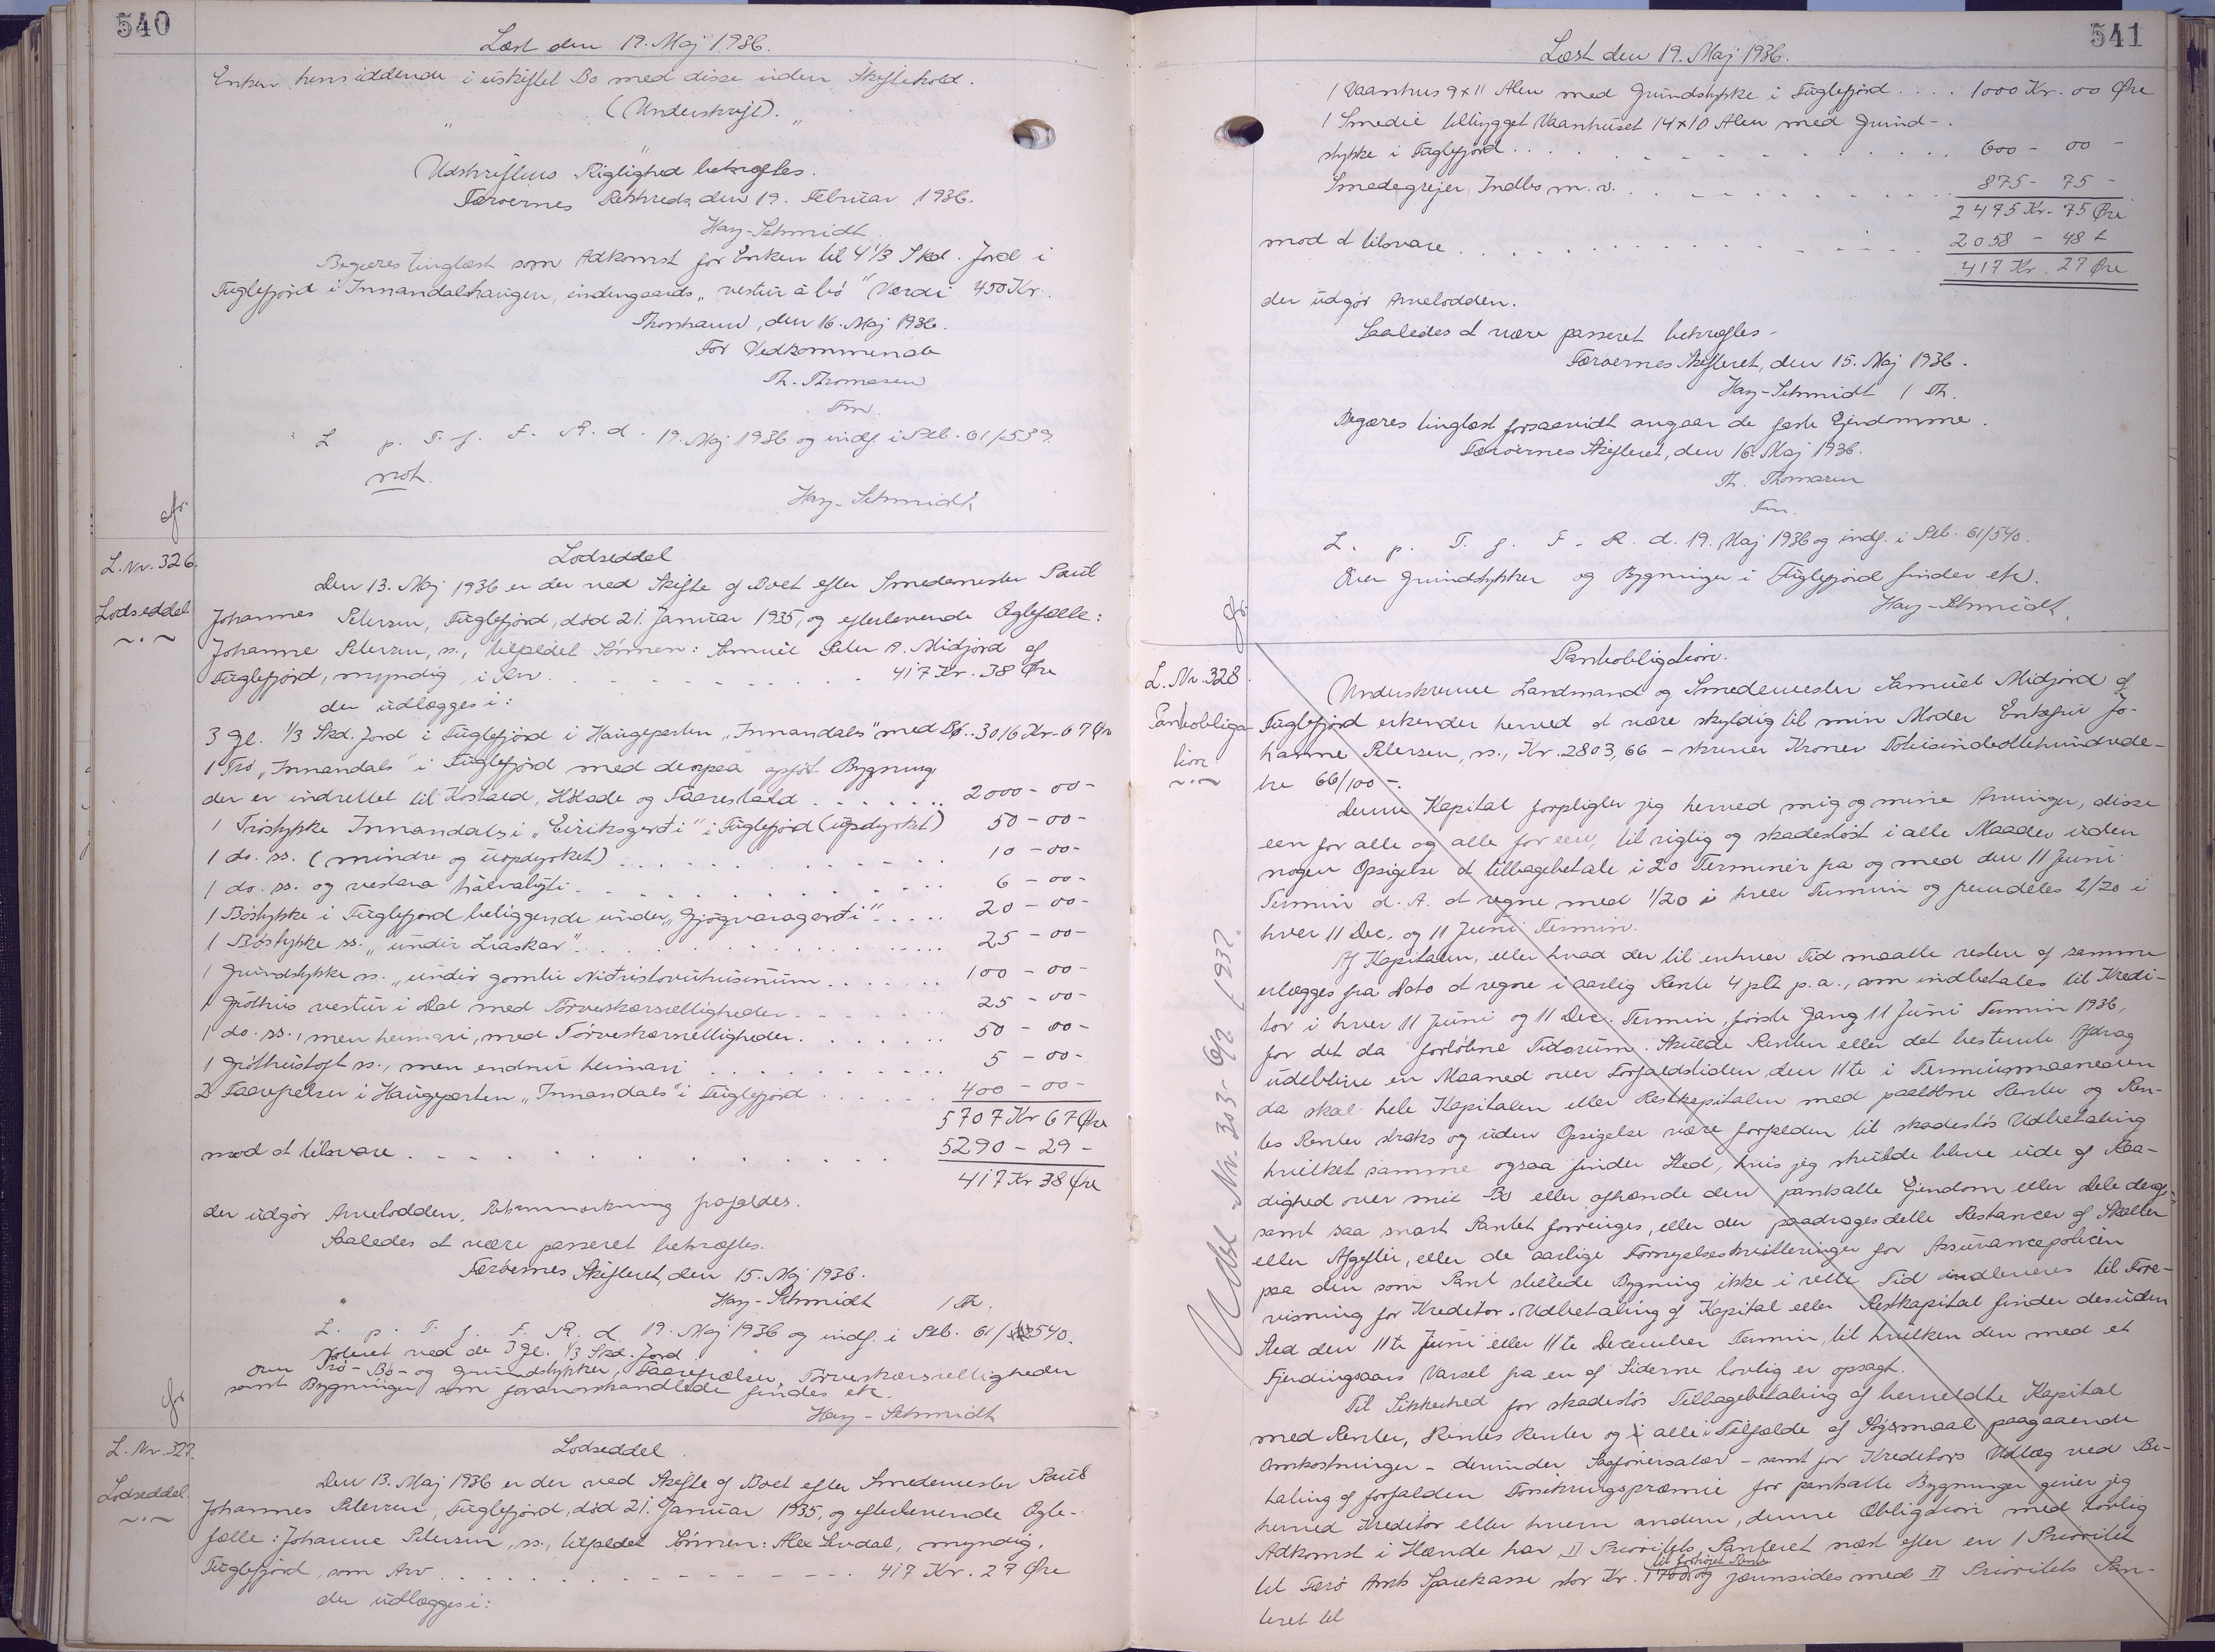 540
Læst den 19. Maj 1936.
Enken hensiddende i uskiftet Bo med disse uden Skiftehold.
(Underskrift).
Udskriftens Rigtighed bekræftes.
Færøernes Retskreds, den 19. Februar 1936.
Hay-Schmidt
Begæres tinglæst som Adkomst for Enken til 4 1/3 Skd. Jord i
Fuglefjord i Innandalshaugen, indengaards „vestur á bö" Værdi 450 Kr.
Thorshavn, den 16. Maj 1936.
For Vedkommende
Th. Thomasen
Fm.
L p. T. f. F. R. d. 19. Maj 1936 og indf. i Ptb. 61/539.
not.
Hay-Schmidt
cfr.
L. Nr. 326.
Lodseddel
Lodseddel
Den 13. Maj 1936 er der ved Skifte af Boet efter Smedemester Paul
Johannes Petersen, Fuglefjord, död 21. Januar 1935, og efterlevende Ægtefælle:
Johanne Petersen, ss., tilfaldet Sönnen: Samuel Peter A. Midjord af
Fuglefjord, myndig, i Arv . . . . 417 Kr. 38 Øre
der udlægges i:
3 Gl. 1/3 Skd. Jord i Fuglefjord i Haugeparten „Innandals" med Bö . . 3016 Kr. 67 Øre
1 Trö „Innandals" i Fuglefjord med derpaa opfört Bygning
der er indrettet til Kostald, Hölade og Faarestald . . . . 2000 - 00 -
1 Tröstykke Innandals, i „Eiriksgerdi" i Fuglefjord (uopdyrket) 50 - 00 -
1 do. ss. (mindre og uopdyrket) . . . . 10 - 00 -
1 do. ss. og vestara hálvabýti . . . . 6 - 00 -
1 Böstykke i Fuglefjord beliggende under „Gjógvaragerdi" . . . . 20 - 00 -
1 Böstykke ss. „undir Liaskar" . . . . 25 - 00 -
1 Grundstykke ss. „undir gomlu Nidristovuhusunum . . . . 100 - 00 -
1 Gróthus vestur i Dal med Törveskærsrettigheder . . . . 25 - 00 -
1 do. ss., men heimari, med Törveskærsrettigheder . . . . 50 - 00 -
1 Gróthustoft ss., men endnu heimari . . . . 5 - 00 -
2 Faarepælser i Haugeparten „Innandals" i Fuglefjord . . . . 400 - 00 -
5707 Kr 67 Øre
mod at tilsvare . . . . 5290 - 29 -
417 Kr 38 Øre
der udgör Arvelodden. Retsanmærkning frafaldes.
Saaledes at være passeret bekræftes.
Færöernes Skifteret, den 15. Maj 1936.
Hay-Schmidt / Th.
L. p. T. f. F. R. d. 19. Maj 1936 og indf. i Ptb. 61/540.
Noteret ved de 3 Gl. 1/3 Skd. Jord
Over Trö- Bö- og Grundstykker, Faarepælser, Törveskærsrettigheder
samt Bygninger som foranomhandlede findes etc.
Hay-Schmidt
cfr.
L. Nr. 327.
Lodseddel
Lodseddel.
Den 13. Maj 1936 er der ved Skifte af Boet efter Smedemester Paul
Johannes Petersen, Fuglefjord, död 21. Januar 1935, og efterlevende Ægte-
fælle: Johanne Petersen, ss., tilfaldet Sönnen: Alex Livdal, myndig,
Fuglefjord, som Arv . . . . 417 Kr. 27 Øre
der udlægges i:
541
Læst den 19. Maj 1936.
1 Vaanhus 9 x 11 Alen med Grundstykke i Fuglefjord . . . . 1000 Kr. 00 Øre
1 Smedie tilbygget Vaanhuset 14 x 10 Alen med Grund-
stykke i Fuglefjord . . . . 600 - 00 -
Smedegrejer, Indbo m. v. . . . . 875 - 75 -
2475 Kr. 75 Øre
mod at tilsvare . . . . 2058 - 48 -
417 Kr. 27 Øre
der udgör Arvelodden.
Saaledes at være passeret bekræftes -
Færöernes Skifteret, den 15. Maj 1936.
Hay-Schmidt / Th.
Begæres tinglæst forsaavidt angaar de faste Ejendomme.
Færöernes Skifteret, den 16. Maj 1936.
Th. Thomasen
Fm.
L. p. T. f. F. R. d. 19. Maj 1936 og indf. i Ptb. 61/540.
Over Grundstykker og Bygninger i Fuglefjord findes etc.
Hay-Schmidt.
cfr.
L. Nr. 328.
Pantobliga-
tion
Pantobligation.
Underskrevne Landmand og Smedemester Samuel Midjord af
Fuglefjord erkender herved at være skyldig til min Moder Enkefru Jo-
hanne Petersen, ss., Kr. 2803,66 - skriver Kroner Totusindeottehundrede-
tre 66/100 -.
Denne Kapital forpligter jeg herved mig og mine Arvinger, disse
een for alle og alle for een, til rigtig og skadeslöst i alle Maader uden
nogen Opsigelse at tilbagebetale i 20 Terminer fra og med den 11 Juni
Termin d. A. at regne med 1/20 i hver Termin og fremdeles 1/20 i
hver 11 Dec. og 11 Juni Termin.
Af Kapitalen, eller hvad der til enhver Tid maatte restere af samme
erlægges fra Dato at regne i aarlig Rente 4 pCt p. a., som indbetales til Kredi-
tor i hver 11 Juni og 11 Dec. Termin, förste Gang 11 Juni Termin 1936,
for det da forlöbne Tidsrum. Skulde Renten eller det bestemte Afdrag
udeblive en Maaned over Forfaldstiden, den 11te i Terminsmaaneden
da skal hele Kapitalen eller Restkapitalen med paalöbne Renter og Ren-
tes Renter straks og uden Opsigelse være forfalden til skadeslös Udbetaling
hvilket samme ogsaa finder Sted, hvis jeg skulde blive ude af Raa-
dighed over mit Bo eller afhænde den pantsatte Ejendom eller Dele deraf,
samt saa snart Pantet forringes, eller der paadrages dette Restancer af Skatter
eller Afgifter, eller de aarlige Fornyelseskvitteringer for Assurancepolicen
paa den som Pant stillede Bygning ikke i rette Tid indleveres til Fore-
visning for Kreditor. Udbetaling af Kapital eller Restkapital finder desuden
Sted den 11te Juni eller 11te December Termin, til hvilken den med et
Fjerdingaars Varsel fra en af Siderne lovlig er opsagt.
Til Sikkerhed for skadeslös Tilbagebetaling af bemeldte Kapital
med Renter, Rentes Renter og alle i Tilfælde af Sögsmaal paagaaende
Omkostninger - derunder Sagförersalær - samt for Kreditors Udlæg ved Be-
taling af forfalden Forsikringspræmie for pantsatte Bygninger giver jeg
herved Kreditor eller hvem anden, denne Obligation med lovlig
Adkomst i Hænde har II Prioritets Panteret næst efter en 1 Prioritet
til forhöjet Rente
til Færö Amts Sparekasse stor Kr. 1700 og jævnsides med II Prioritets Pan-
teret til
Udsl. Nr. 303- 6/7 1937.